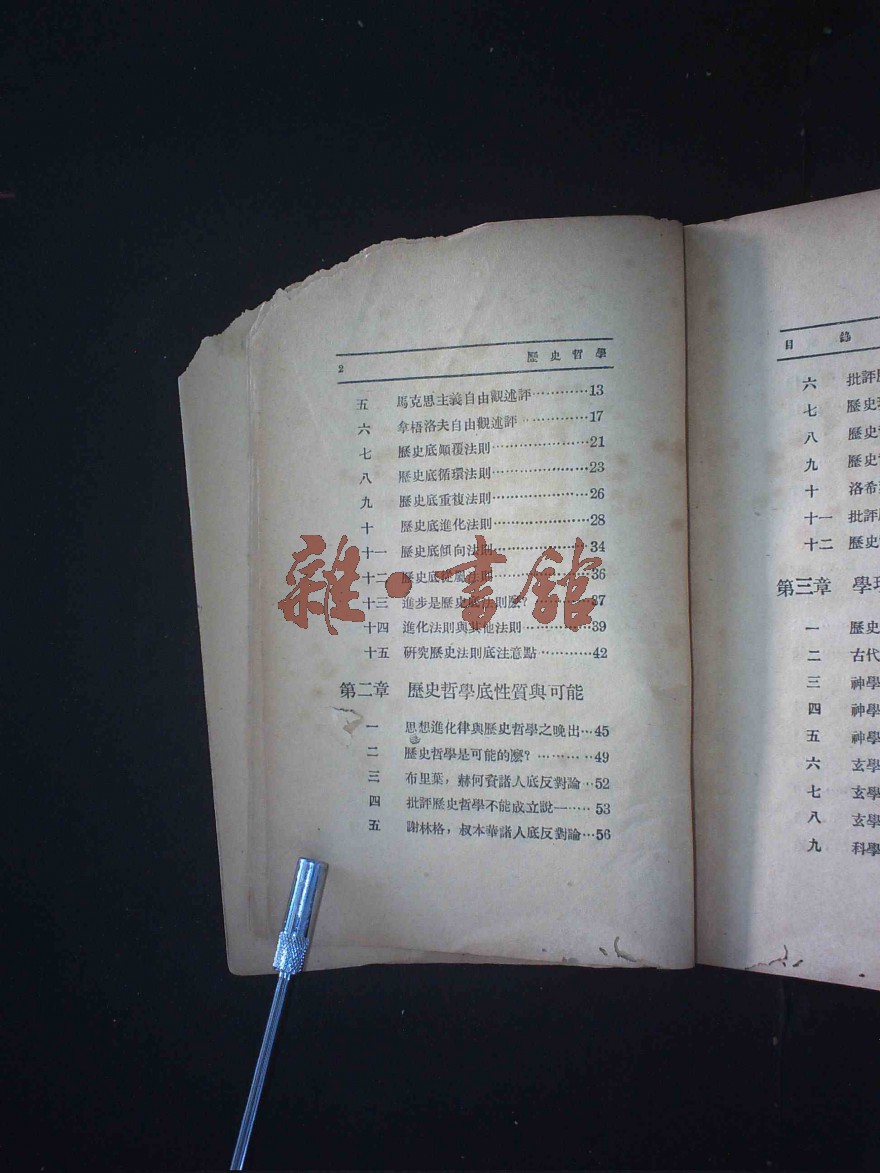 2 歷史哲學
五 馬克思主義自由觀述評…………13
六 拿梧洛夫自由觀述評…………17
七 歷史底顚覆法則…………21
八 歷史底循環法則…………23
九 歷史底重複法則…………26
十 歷史底進化法則…………28
十一 歷史底傾向法則…………34
十二 歷史底從屬法則…………36
十三 進步是歷史底法則麼?…………37
十四 進化法則與其他法則…………39
十五 研究歷史法則底注意點…………42
第二章 歷史哲學底性質與可能
一 思想進化律與歷史哲學之晚出…45
二 歷史哲學是可能的麼?…………49
三 布里葉,赫何賚諸人底反對論…52
四 批評歷史哲學不能成立說………53
五 謝林格,叔本華諸人底反對論…56
雜·書館
目錄
六 批評
七 歷史
八 歷史
九 歷史
十 洛希
十一 批評
十二 歷史
第三章 學
一 歷史
二 古代
三 神學
四 神學
五 神學
六 玄學
七 玄學
八 玄學
九 科學